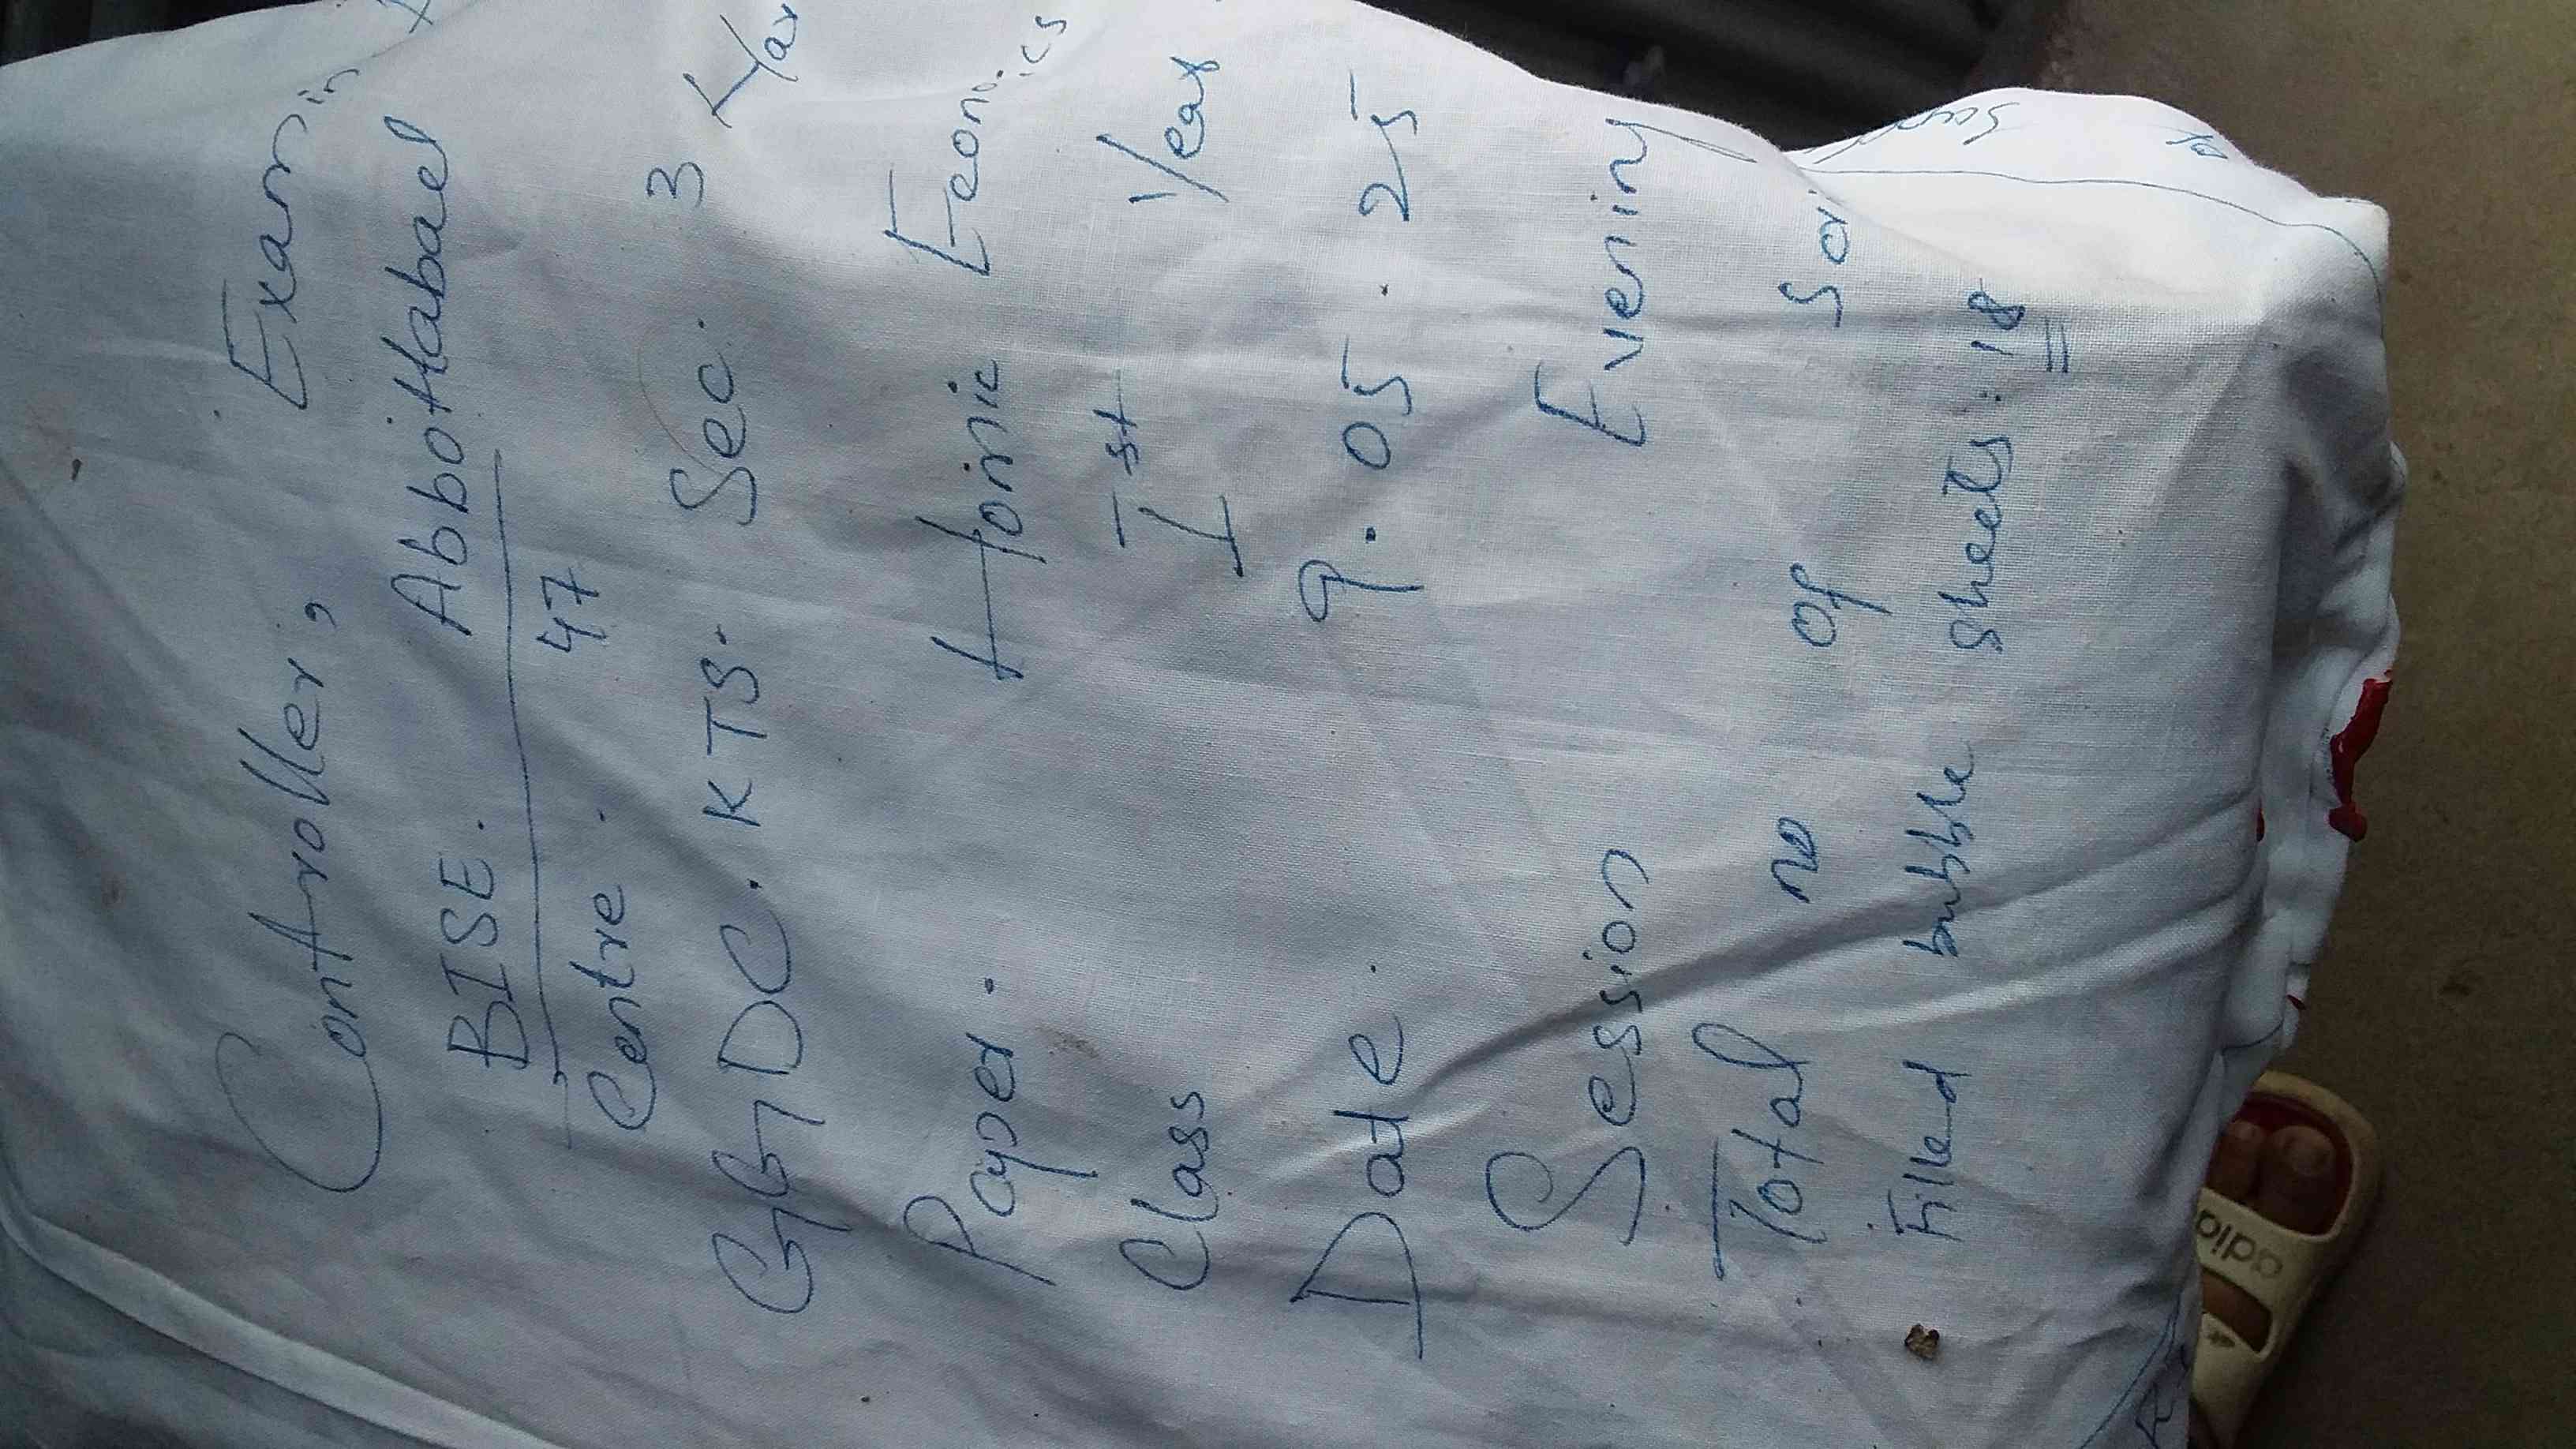 Controller, Examin
BISE. Abbottabad
Centre. 47
GGDC. KTS. Sec. 3 Har
Paper. Home Economics
Class Ist Year
Date. 9.05.25
Session Evening
Total no of
Filled bubble sheets: 18
adida